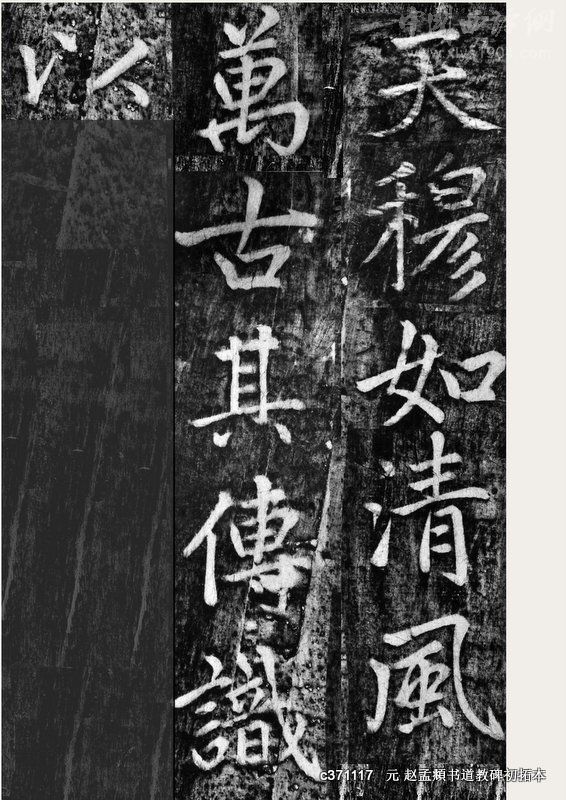 天穆如清風
萬古其傳識
以
c371117 元 赵孟頫书道教碑初拓本